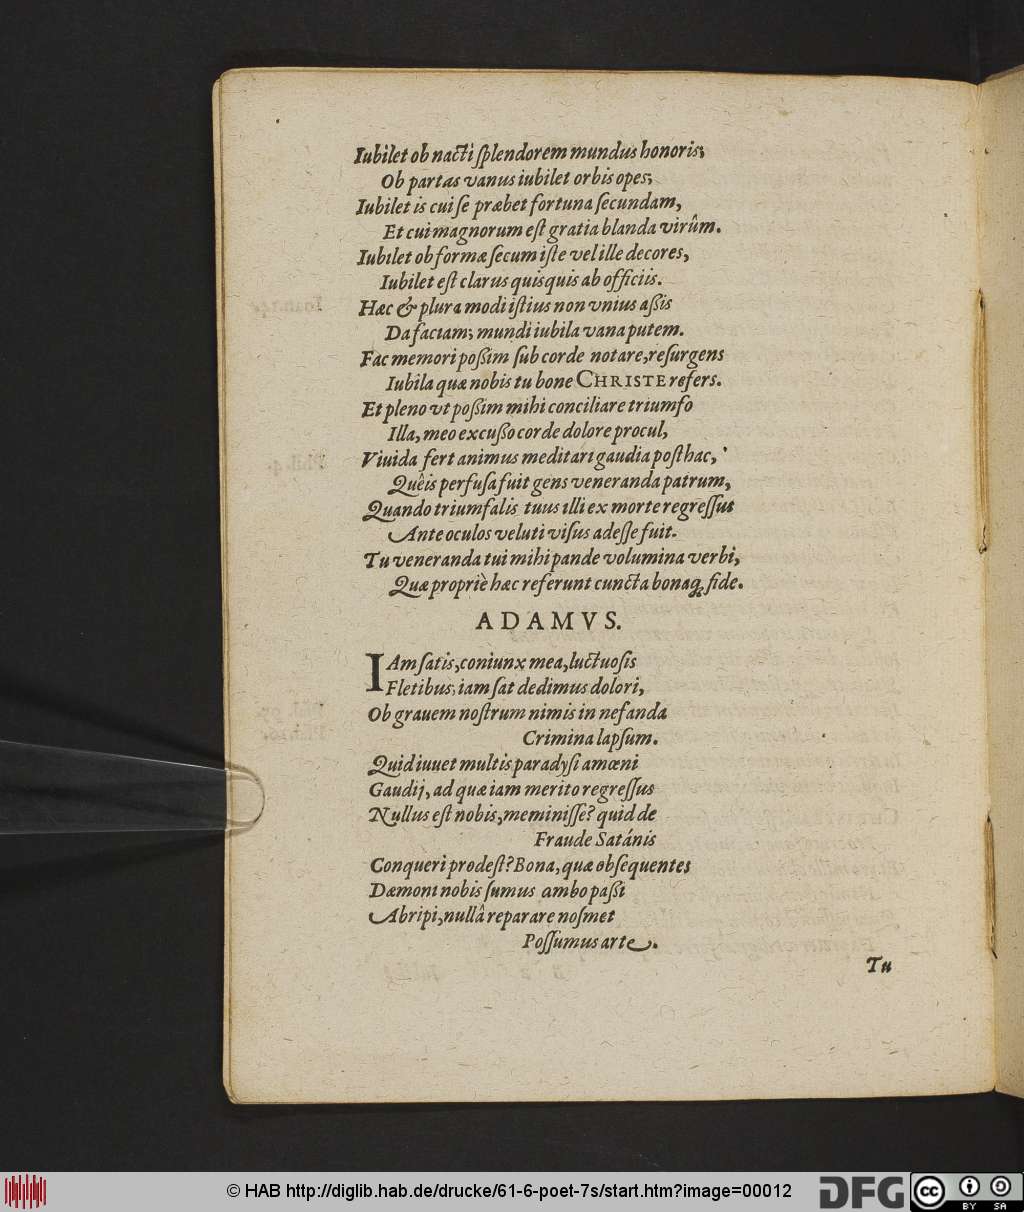 Iubilet ob nacti splendorem mundus honoris;
Ob partas vanus iubilet orbis opes;
Iubilet is cui se præbet fortuna secundam,
Et cui magnorum est gratia blanda virûm.
Iubilet ob formæ secum iste vel ille decores,
Iubilet est clarus quisquis ab officiis.
Hæc & plura modi istius non vnius aßis
Da faciam; mundi iubila vana putem.
Fac memori poßim sub corde notare, resurgens
Iubila quæ nobis tu bone CHRISTE refers.
Et pleno vt poßim mihi conciliare triumfo
Illa, meo excußo corde dolore procul,
Viuida fert animus meditari gaudia posthac,
Quêis perfusa fuit gens veneranda patrum,
Quando triumfalis tuus illi ex morte regressus
Ante oculos veluti visus adesse fuit.
Tu veneranda tui mihi pande volumina verbi,
Quæ propriè hæc referunt cuncta bonaq; fide.
ADAMVS.
IAm satis, coniunx mea, luctuosis
Fletibus; iam sat dedimus dolori,
Ob grauem nostrum nimis in nefanda
Crimina lapsum.
Quid iuuet multis paradysi amœni
Gaudij, ad quæ iam merito regressus
Nullus est nobis, meminisse? quid de
Fraude Satánis
Conqueri prodest? Bona, quæ obsequentes
Dæmoni nobis sumus ambo paßi
Abripi, nullâ reparare nosmet
Possumus arte.
Tu
© HAB http://diglib.hab.de/drucke/61-6-poet-7s/start.htm?image=00012
DFG
cc
BY SA